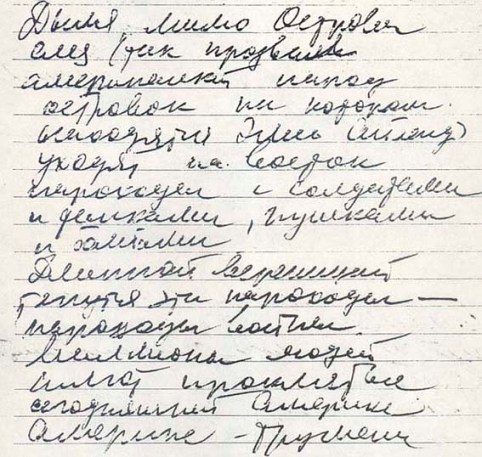 Дымя, мимо Острова
слез (так прозвал
американский народ
островок на котором
находятся Эллис Айленд)
уходят на восток
пароходы с солдатами
и танками, пушками
и
Длинной вереницей
тянутся эти пароходы —
пароходы войны.
Миллионы людей
шлют проклятье
сегодняшней Америке
Америке - Трумена